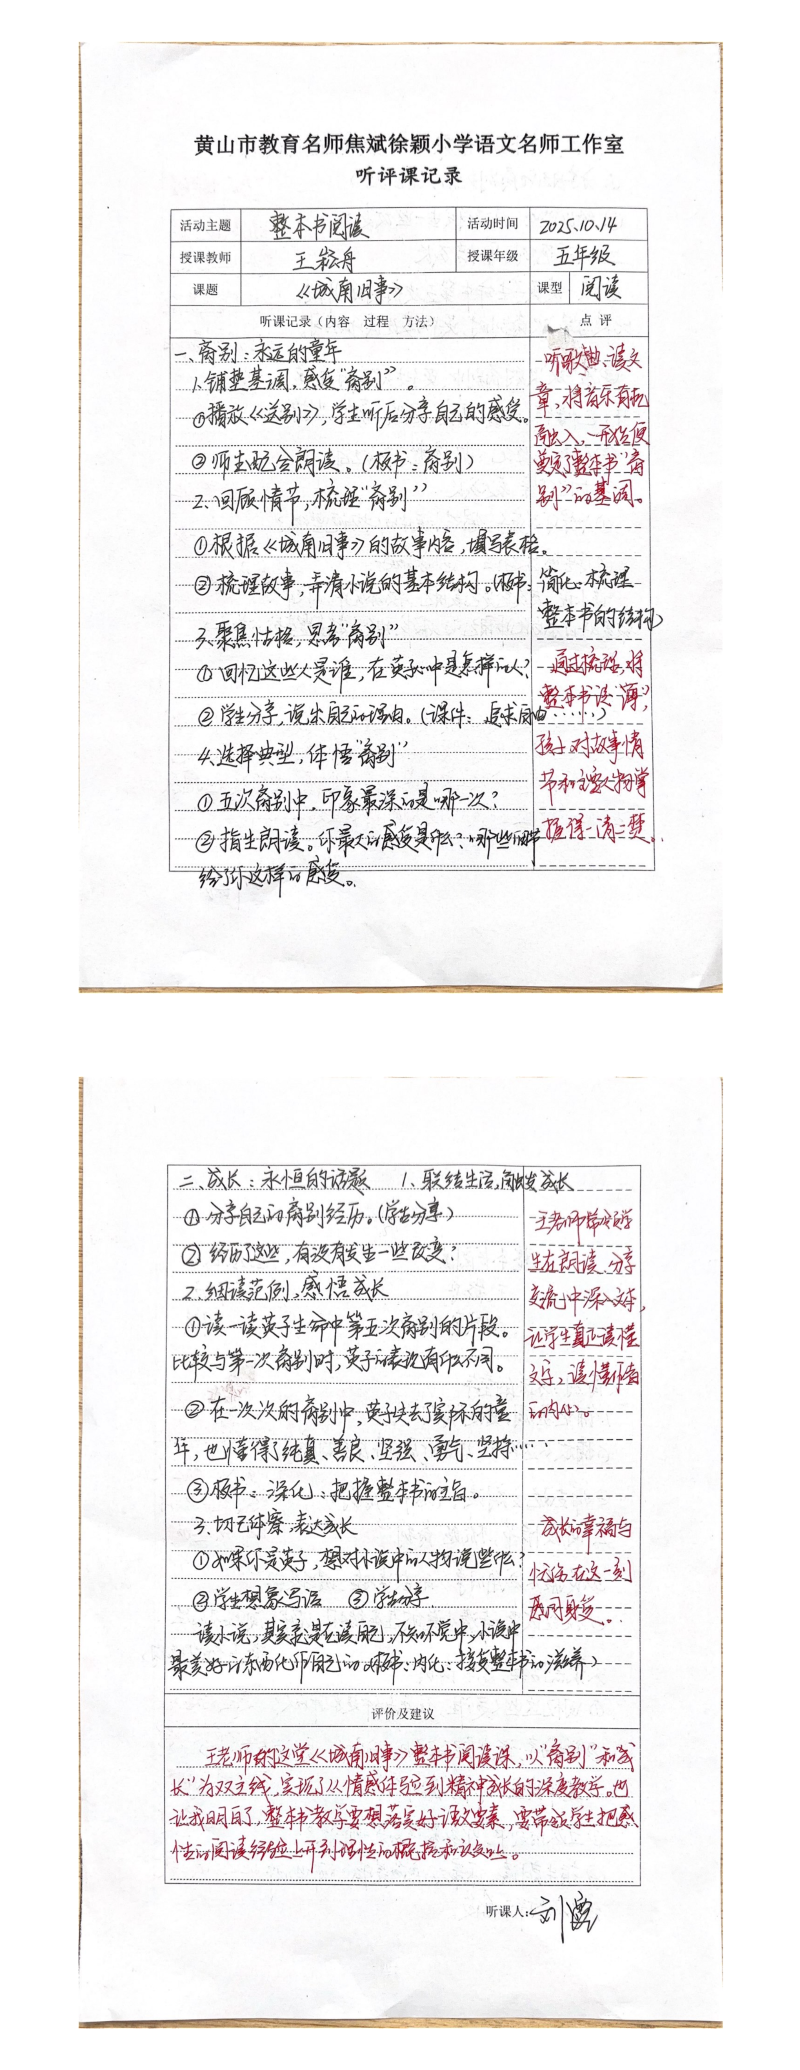 黄山市教育名师焦斌徐颖小学语文名师工作室
听评课记录
活动主题 整本书阅读 活动时间 2025.10.14
授课教师 王崧舟 授课年级 五年级
课题 《城南旧事》 课型 阅读
听课记录（内容 过程 方法） 点 评
一、离别：永远的童年
1.铺垫基调，感受“离别”。
①播放《送别》，学生听后分享自己的感受。
②师生配合朗读。（板书：离别）
2.回顾情节，梳理“离别”
①根据《城南旧事》的故事内容，填写表格。
②梳理故事，弄清小说的基本结构。（板书：简化：梳理
整本书的结构）
3.聚焦性格，思考“离别”
①回忆这些人是谁，在英子心中是怎样的人？
②学生分享，说出自己的理由。（课件：追求自由……）
4.选择典型，体悟“离别”
①五次离别中，印象最深的是哪一次？
②指生朗读。你最大的感受是什么？哪些细节
给了你这样的感受。
听歌曲、读文
章，将音乐有机
融入，一开始便
奠定了整本书“离
别”的基调。
通过梳理，将
整本书读“薄”，
孩子对故事情
节和主要人物掌
握得一清二楚。
二、成长：永恒的话题 1.联结生活，触发成长
①分享自己的离别经历。（学生分享）
②经历了这些，有没有发生一些改变？
2.细读范例，感悟成长
①读一读英子生命中第五次离别的片段。
比较与第一次离别时，英子的表现有什么不同。
②在一次次的离别中，英子失去了实际的童
年，也懂得了纯真、善良、坚强、勇气、坚持……
③板书：深化：把握整本书的主旨。
3.切己体察，表达成长
①如果你是英子，想对小说中的人物说些什么？
②学生想象写话 ③学生分享
读小说，其实就是在读自己，不知不觉中，小说中
最美好的东西化作自己的（板书：内化：接受整本书的滋养）
王老师带领学
生在朗读、分享
交流中深入文本，
让学生真正读懂
文字，读懂作者
的内心。
成长的幸福与
忧伤在这一刻
感同身受。
评价及建议
王老师的这堂《城南旧事》整本书阅读课，以“离别”和“成
长”为双主线，实现了从情感体验到精神成长的深度教学。也
让我明白了，整本书教学要想落实好语文要素，要带领学生把感
性的阅读经验上升到理性的概括和认知上。
听课人：刘霞